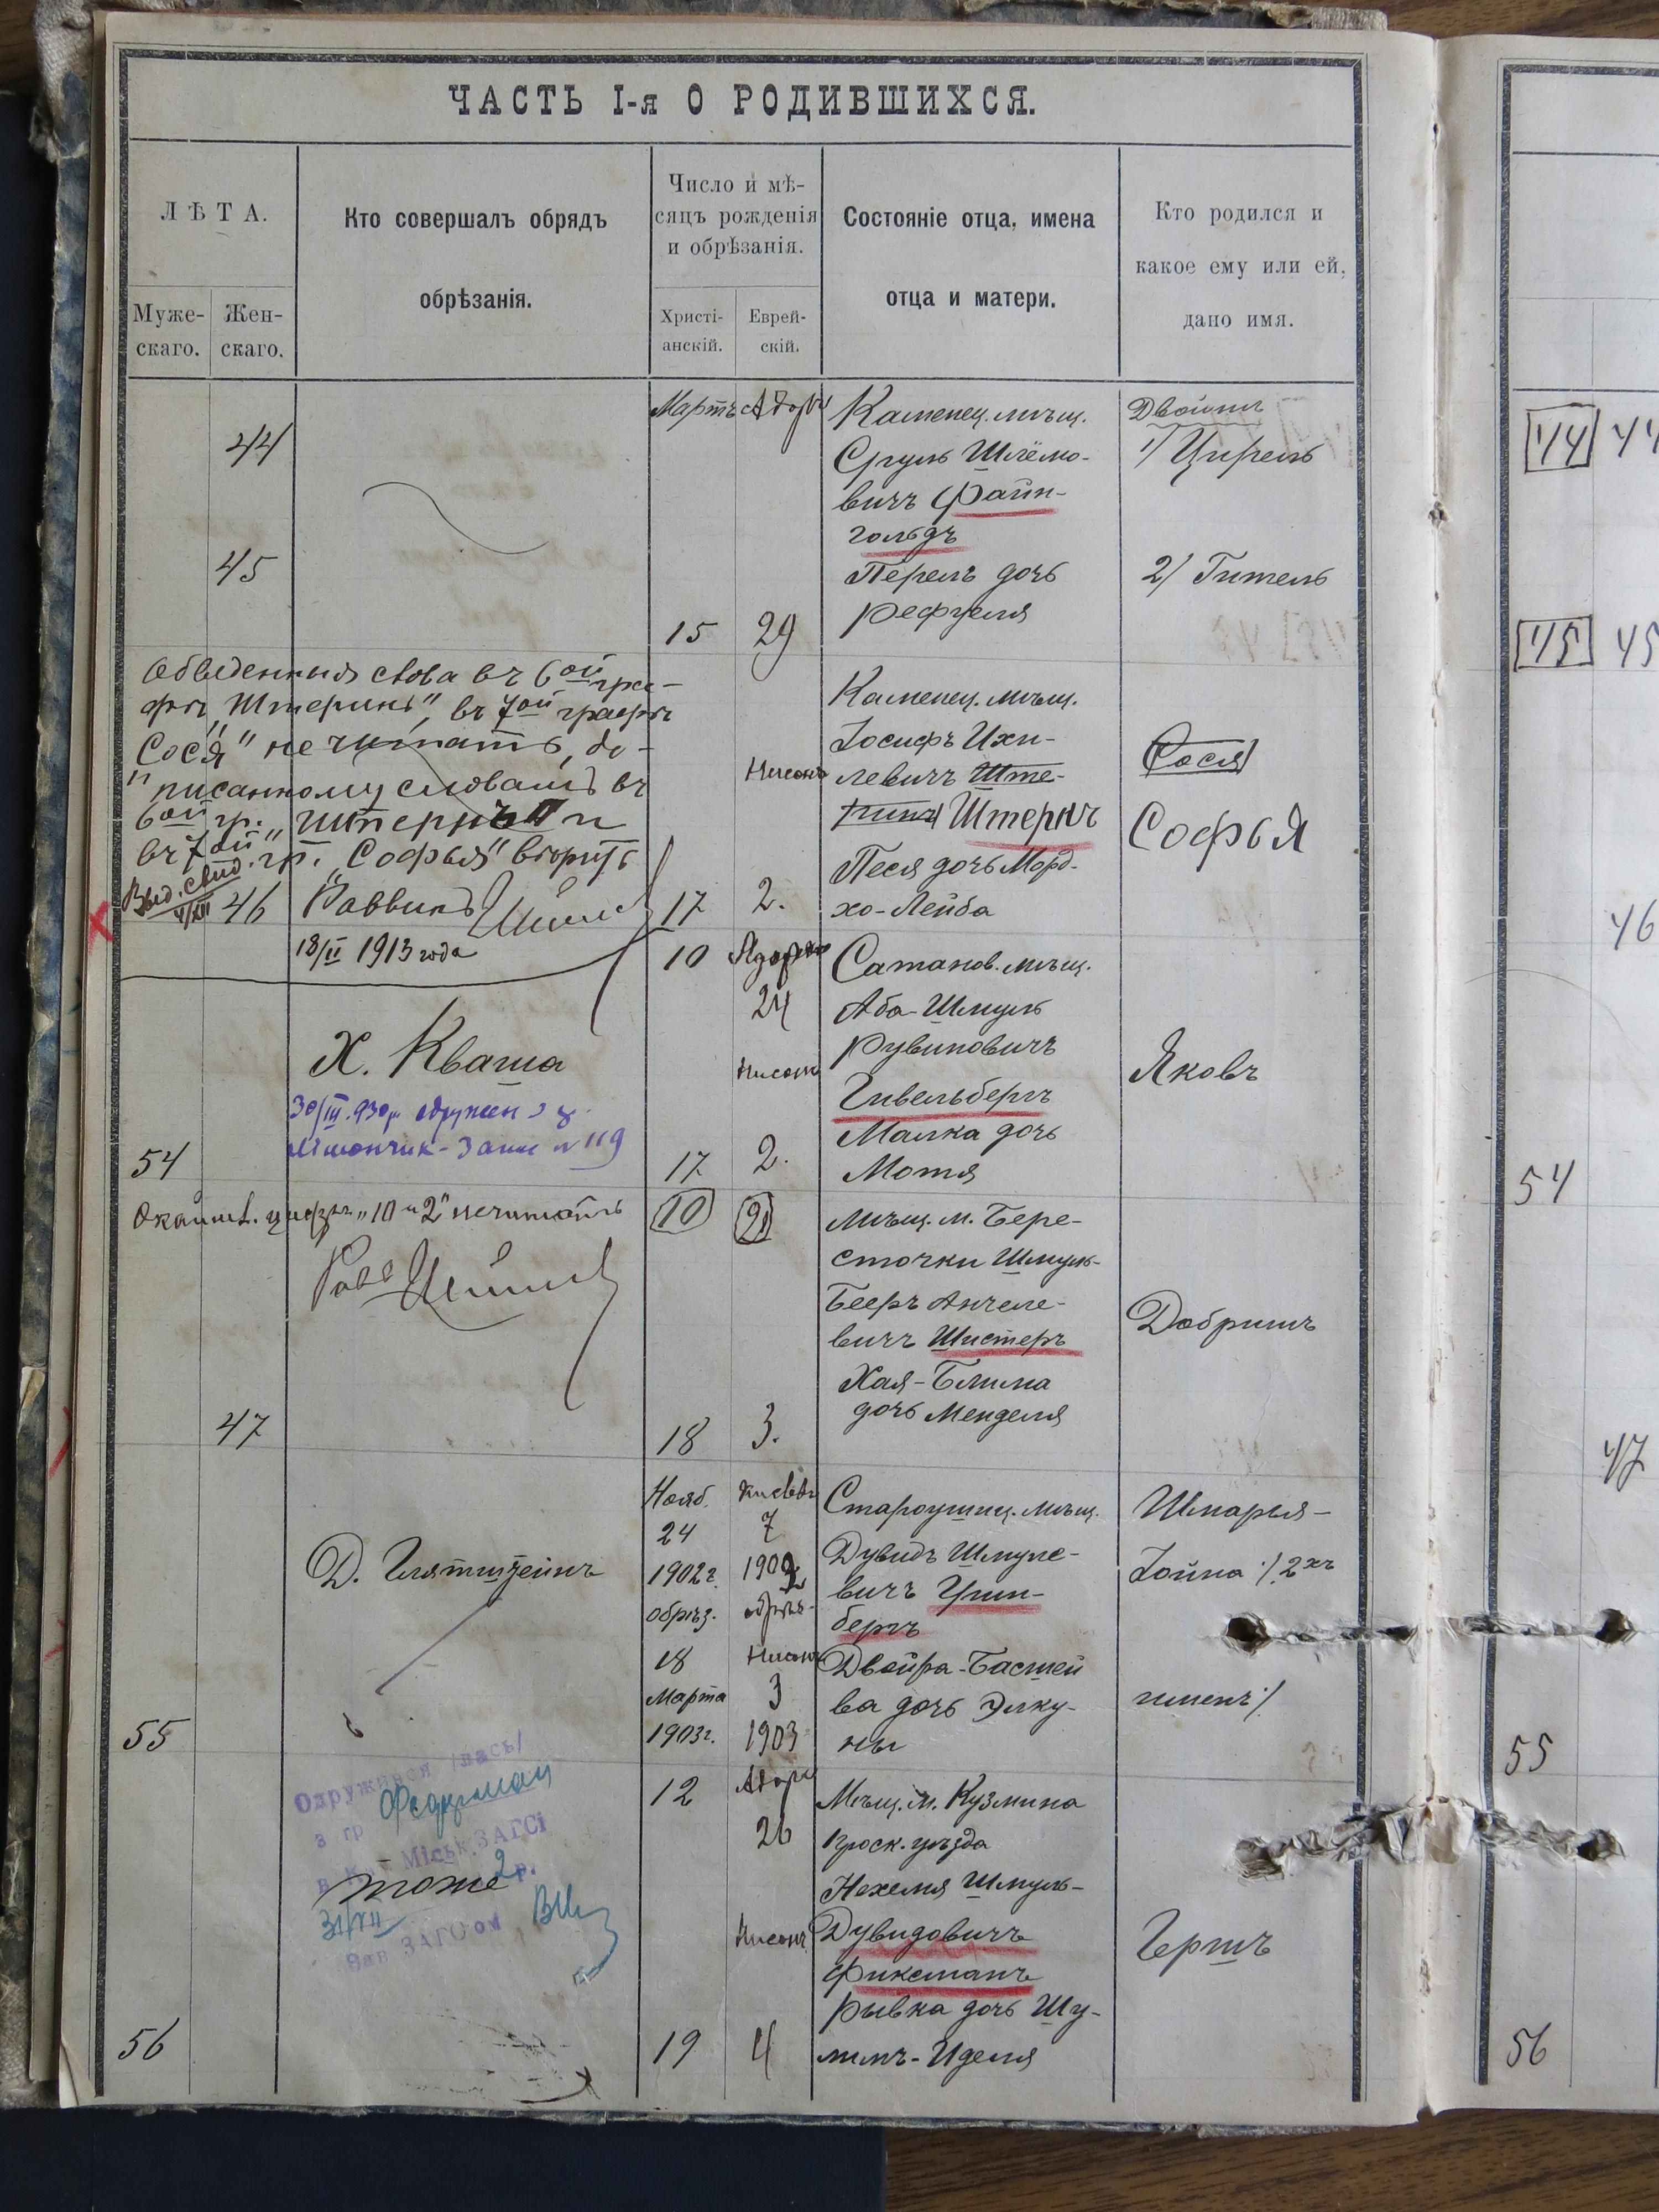 ЧАСТЬ I-я О РОДИВШИХСЯ.
ЛѢТА.
Муже-
скаго.
Жен-
скаго.
Кто совершалъ обрядъ
обрѣзанія.
Число и мѣ-
сяцъ рожденія
и обрѣзанія.
Христі-
анскій.
Еврей-
скій.
Состояніе отца, имена
отца и матери.
Кто родился и
какое ему или ей,
дано имя.
44
45
Мартъ
15
29
Каменец. мѣщ.
Сруль Шлёмо-
вичъ Файн-
гольдъ
Перель дочь
Рефуеля
Двойни
1/ Цирель
2/ Гитель
44
44
45
45
Обведенныя слова въ 6ой гра-
фѣ „Штеринъ", въ 7ой графѣ
„Сося" не читать, до-
писанному словамъ въ
6ой гр. „Штернъ" и
въ 7ой гр. „Софья" вѣрить
Выд. свид.
46
Раввинъ
18/II 1913 года
17
Нисонъ
2.
Каменец. мѣщ.
Іосифъ Ихи-
левичъ Ште-
ринъ Штернъ
Песя дочь Морд-
хо-Лейба
Сося
Софья
46
54
Х. Кваша
30/III.930р. одружен з г.
119
10
24
Нисонъ
17
2.
Сатанов. мѣщ.
Аба-Шмуль
Рувиновичъ
Гивельбергъ
Малка дочь
Мотя
Яковъ
54
цифры „10 и 2" не читать
Равв
47
10
18
3.
Мѣщ. м. Бере-
сточки Шмуль-
Бееръ Анчеле-
вичъ Шистеръ
Хая-Блима
дочь Менделя
Добришъ
47
55
Д. Глятштейнъ
Нояб.
24
1902г.
обрѣз.
18
Марта
1903г.
Кислевъ
7
1902
обрѣз.
Нисонъ
3
1903
Староушиц. мѣщ.
Дувидъ Шмуле-
вичъ Грин-
бергъ
Двойра-Басшей
ва дочь Элку-
ны
Шмарья-
Іойна /:2хъ
именъ:/
55
56
Одружився /лась/
з гр
Міськ.ЗАГСі
тоже
31/XII
Зав ЗАГСом
12
26
Нисонъ
19
4
Мѣщ. м. Кузмина
Проск. уѣзда
Нехемя Шмуль-
Дувидовичъ
Фиксманъ
Рывка дочь Шу-
лимъ-Иделя
Гершъ
56